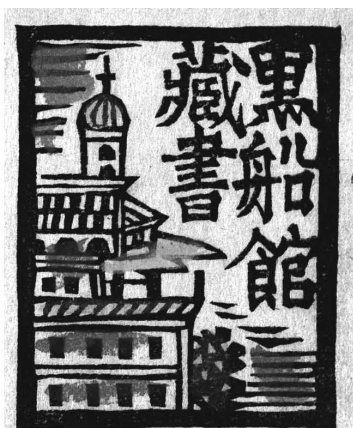 黒船館
藏書